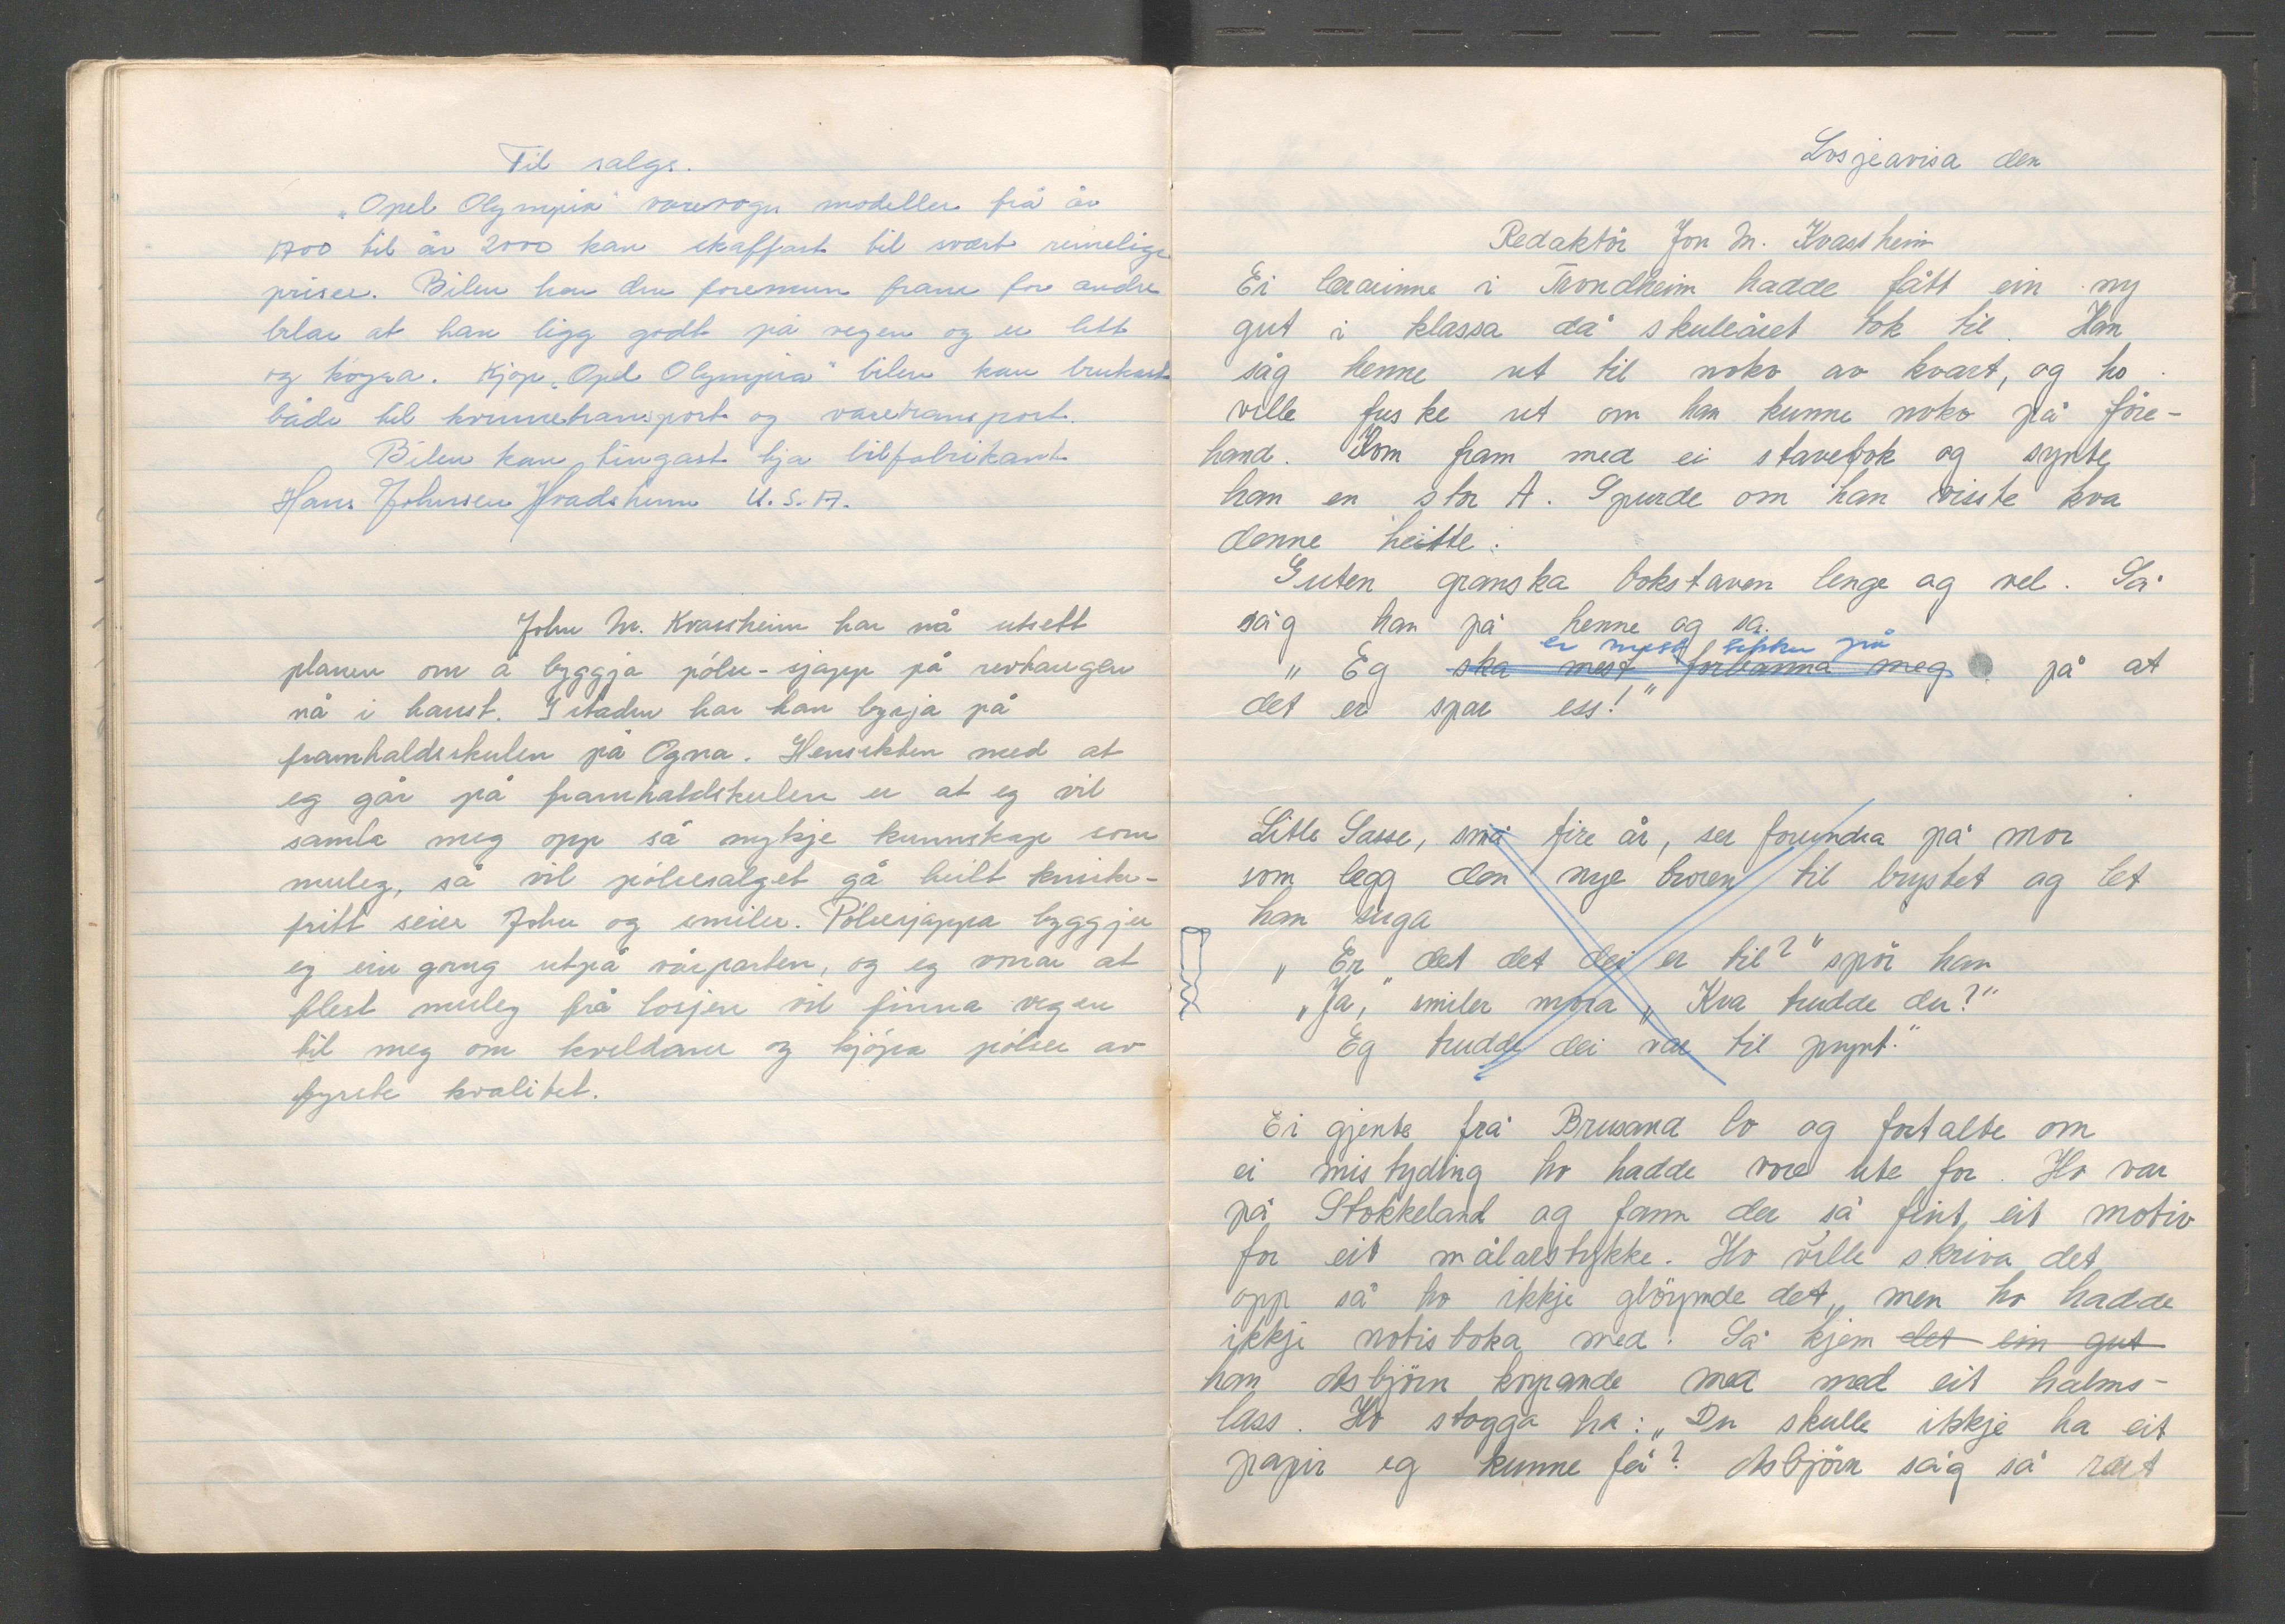 Til salgs.
„Opel Olympia" varevogn modeller frå år
1700 til år 2000 kan skaffast til svært rimelige
priser. Bilen har den foremun fram for andre
bilar at han ligg godt på vegen og er lett
og køyra. Kjøp „Opel Olympia" bilen kan brukast
både til kvinnetransport og varetransport.
Bilen kan tingast hja bilfabrikant
Hans Johnsen Hradsheim U.S.A.
John M. Kvassheim har nå utsett
planen om å byggja pölse-sjapp på revhaugen
nå i haust. I staden har han byrja på
framhaldsskulen på Ogna. Hensikten med at
eg går på framhaldskulen er at eg vil
samla meg opp så mykje kunnskap som
muleg, så vil pölsesalget gå heilt knirke-
fritt seier John og smiler. Pölsesjappa byggjer
eg ein gong utpå vårparten, og eg vonar at
flest muleg frå losjen vil finna vegen
til meg om kveldane og kjöpa pölser av
fyrste kvalitet.
Losjeavisa den
Redaktör Jon M. Kvassheim
Ei lærarinne i Trondheim hadde fått ein ny
gut i klassa då skuleåret tok til. Han
såg henne ut til noko av kvart, og ho
ville fuske ut om han kunne noko på före-
hand. Kom fram med ei stavebok og synte
han en stor A. Spurde om han visste kva
denne heitte.
Guten granska bokstaven lenge og vel. Så
såg han på henne og sa.
er mest sikker på
„Eg ska mest forbanna meg på at
det er spar ess!"
Litle Lasse, små fire år, ser forundra på mor
som legg den nye broren til brystet og let
han suga
„Er det det dei er til?" spör han
„Ja," smiler mora „Kva trudde du?"
Eg trudde dei var til prynt."
Ei gjente frå Brusand lo og fortalte om
ei mistyding ho hadde vore ute for. Ho var
på Stokkeland og fann der så fint eit motiv
for eit målarstykke. Ho ville skriva det
opp så ho ikkje glöymde det, men ho hadde
ikkje notisboka med. Så kjem det ein gut
han Asbjörn köyrande med med eit halms-
lass. Ho stogga ha: „Du skulle ikkje ha eit
papir eg kunne få? Asbjörn såg så rart